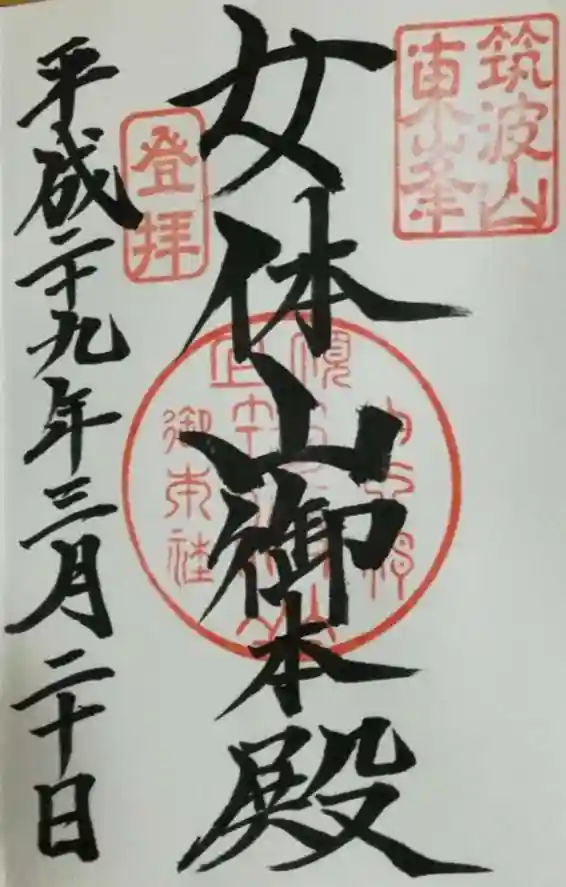 筑波山
東峯
女体山御本殿
登拝
御本社
平成二十九年三月二十日